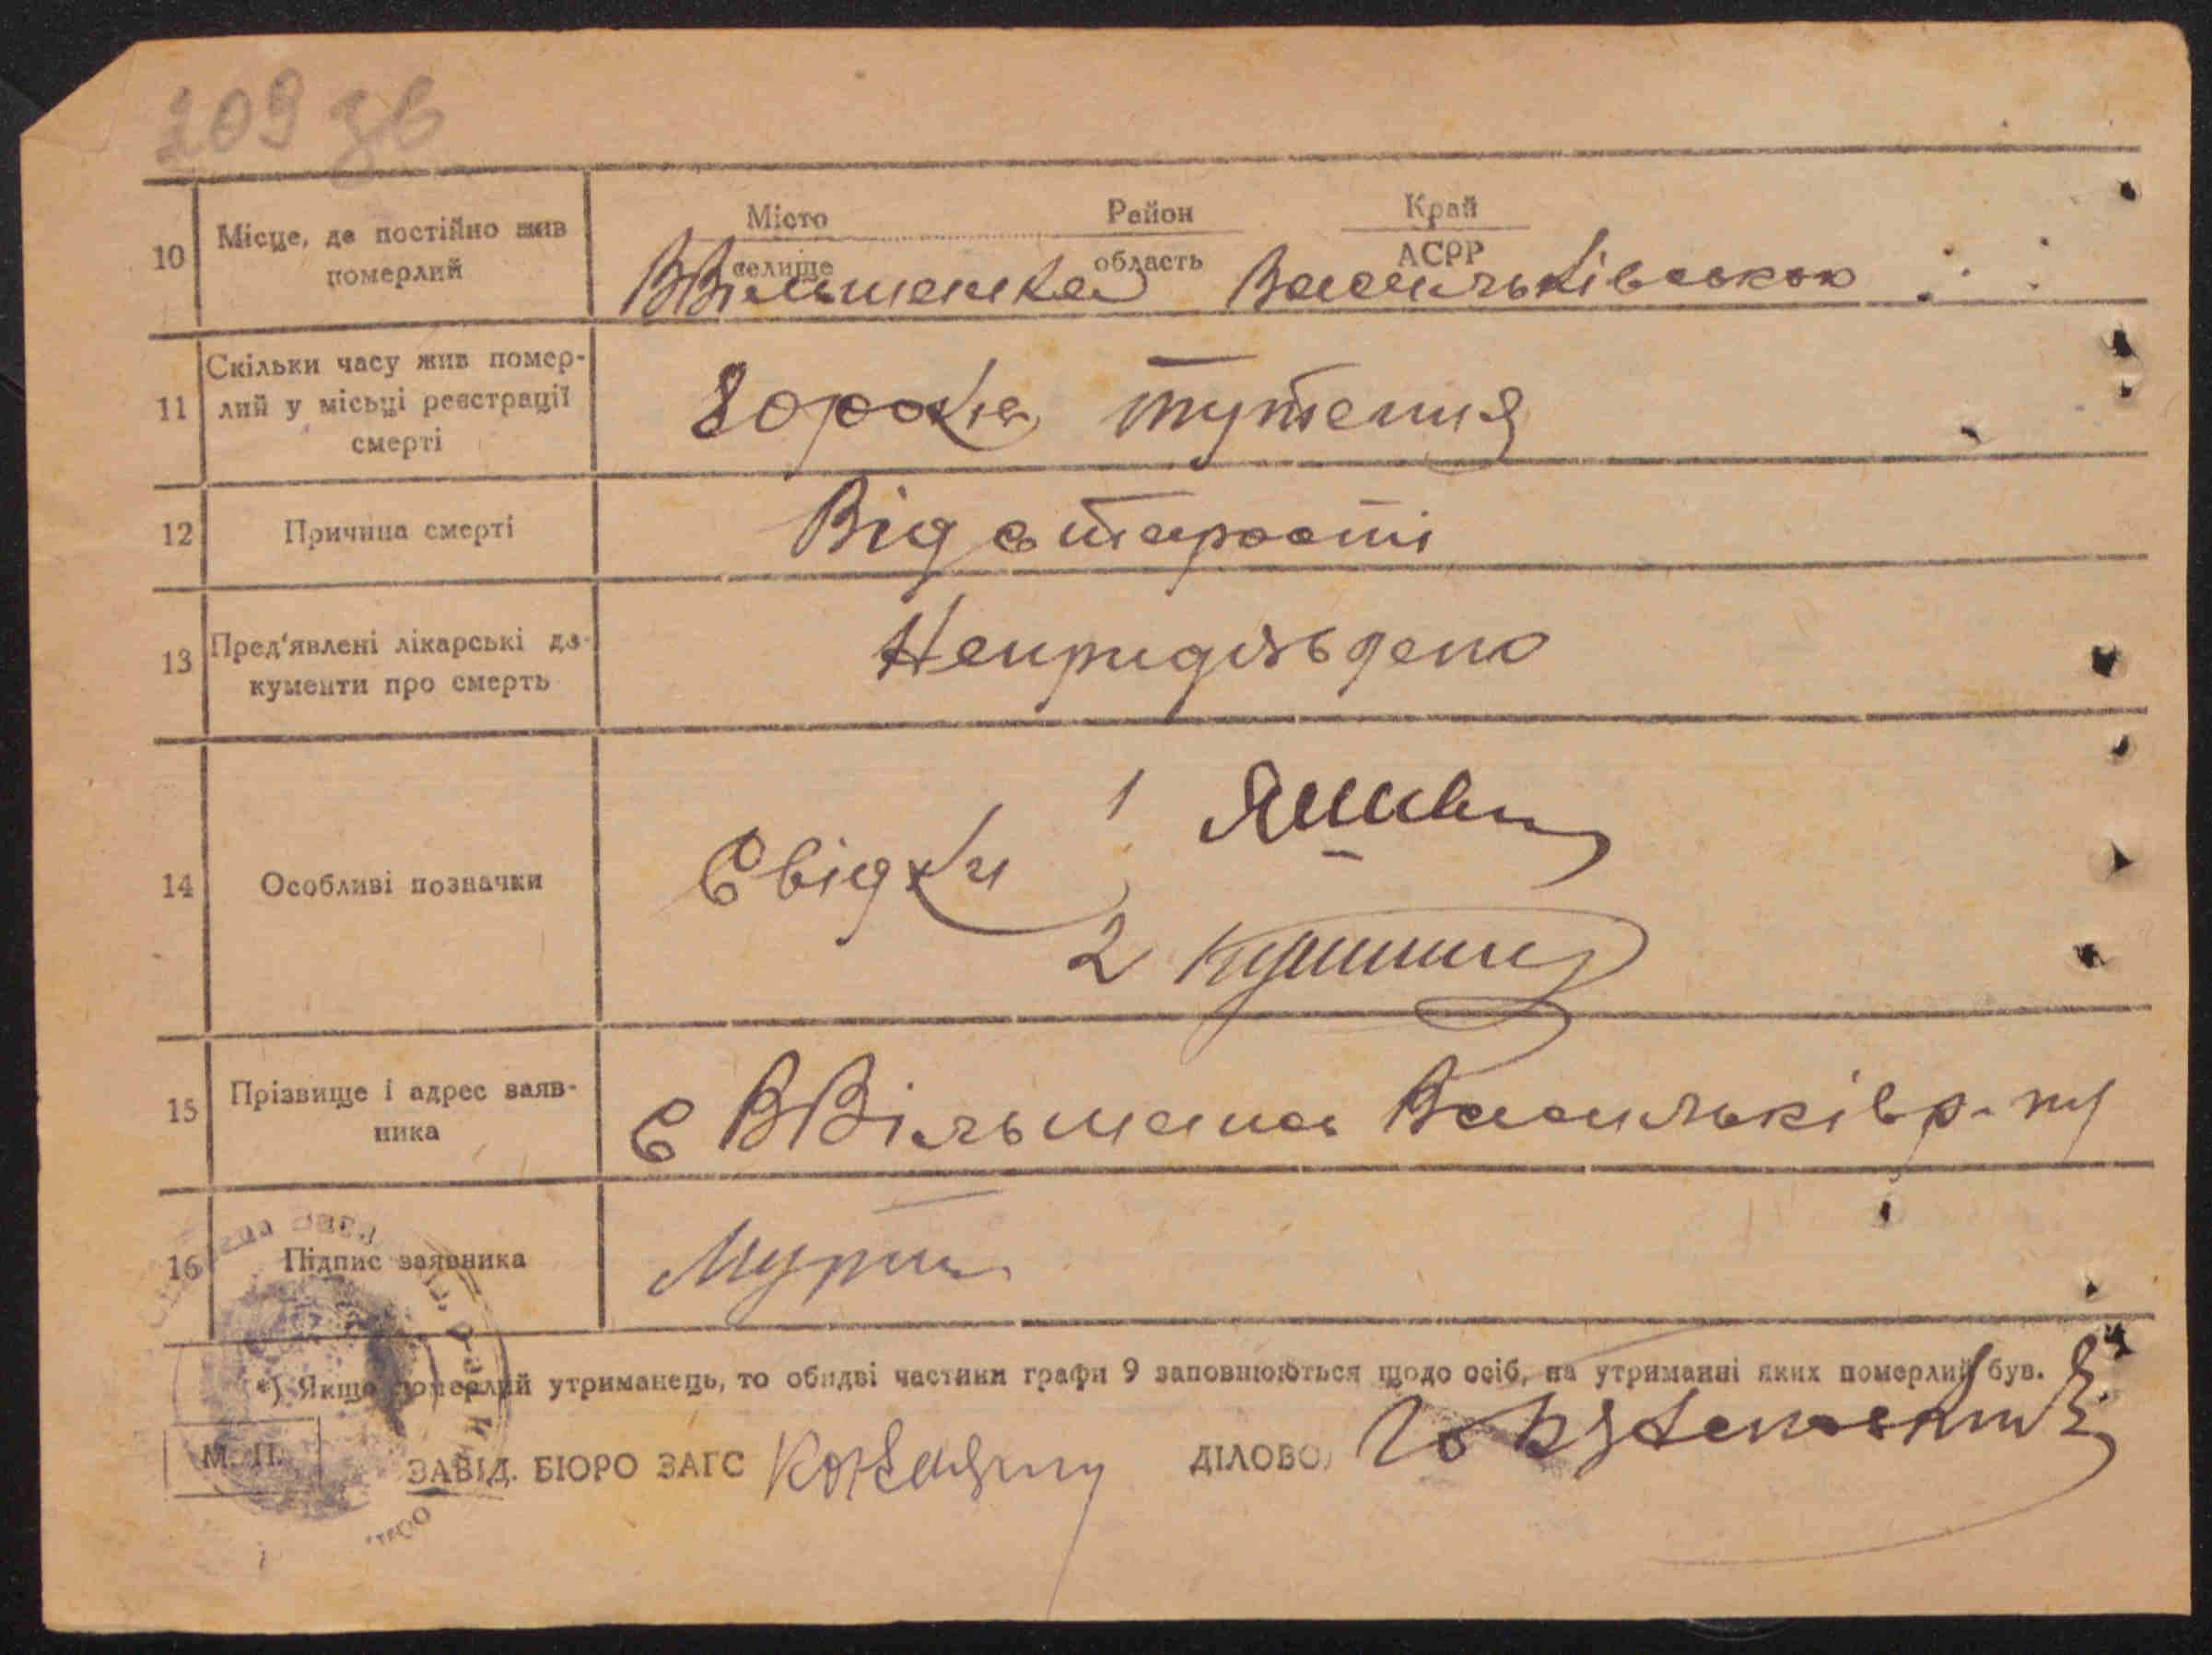 209 зв
10 Місце, де постійно жив померлий
Місто Район Край
селище область АСРР
ВВільшанка Васильківського
11 Скільки часу жив помер-
лий у місьці реєстрації
смерті
80 років тутешня
12 Причина смерті Від старості
13 Пред'явлені лікарські до-
кументи про смерть
14 Особливі позначки
Свідки 1
2
15 Прізвище і адрес заяв-
ника
с ВВільшанка Васильків р-ну
16 Підпис заявника
*) Якщо померлий утриманець, то обидві частини графи 9 заповнюються щодо осіб, на утриманні яких померлий був.
М. П.
ЗАВІД. БЮРО ЗАГС ДІЛОВОД